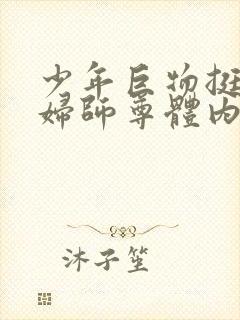 少年巨物挺
婦師尊體内
沐子笙